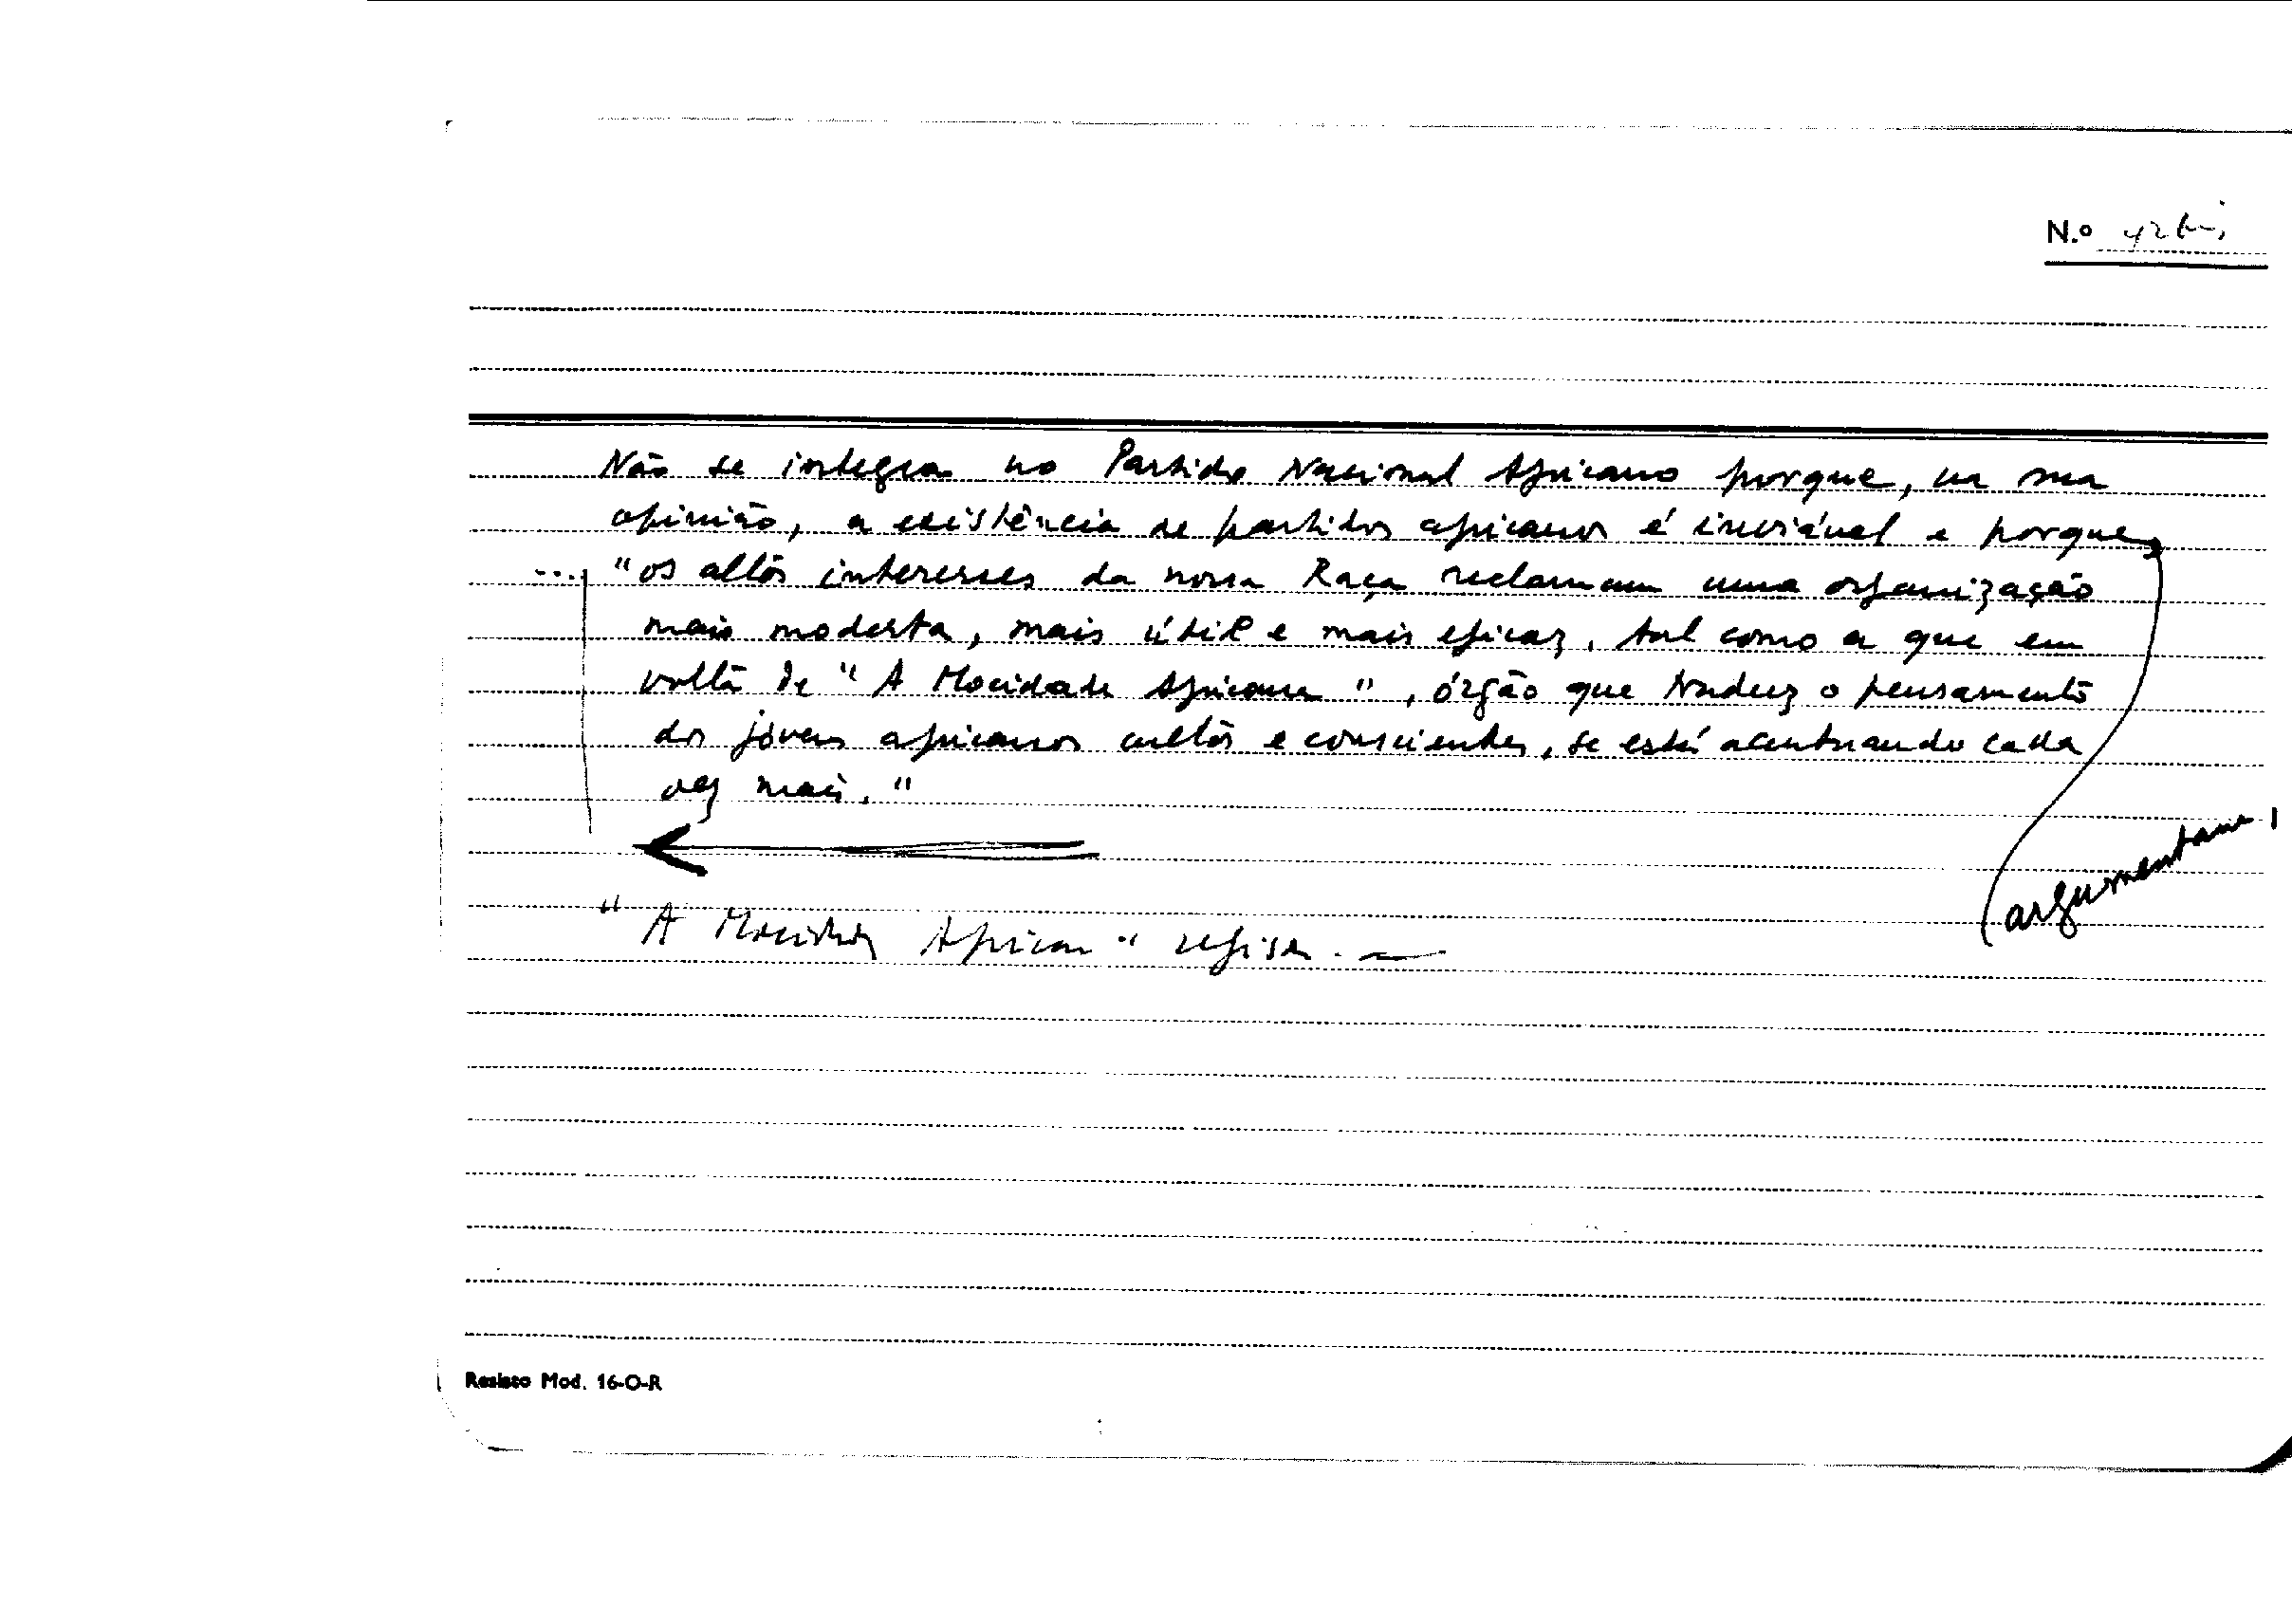 N.º 42 bis
Não se integra no Partido Nacional Africano porque, na sua
opinião, a existência de partidos africanos é inviável e porque,
... "os altos interesses da nossa Raça reclamam uma organização
mais modesta, mais útil e mais eficaz, tal como a que em
volta de "A Mocidade Africana", órgão que traduz o pensamento
dos jovens africanos cultos e conscientes, se está acentuando cada
vez mais."
argumentam
"A Mocidade African"
Resisto Mod. 16-O-R